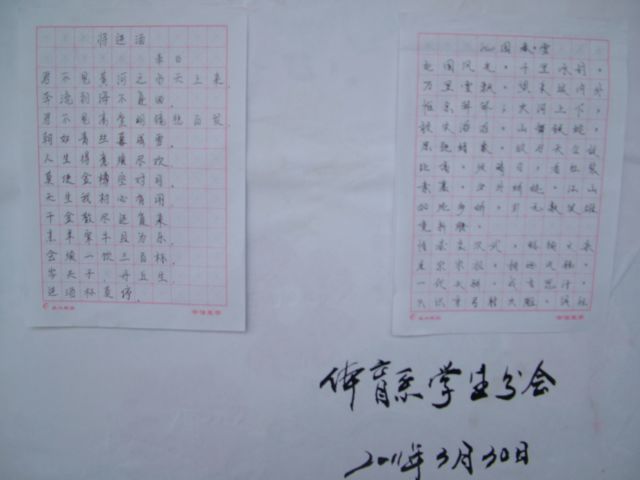 将进酒
李白
君不见黄河之水天上来,
奔流到海不复回。
君不见高堂明镜悲白发,
朝如青丝暮成雪。
人生得意须尽欢
莫使金樽空对月。
天生我材必有用
千金散尽还复来
烹羊宰牛且为乐,
会须一饮三百杯。
岑夫子,丹丘生
进酒杯莫停。
沁园春·雪
北国风光,千里冰封,
万里雪飘。望长城内外
惟余莽莽;大河上下,
顿失滔滔。山舞银蛇,
原驰蜡象,欲与天公试
比高。须晴日,看红装
素裹,分外妖娆。江山
如此多娇,引无数英雄
竞折腰。
惜秦皇汉武,略输文采
唐宗宋祖,稍逊风骚。
一代天骄,成吉思汗,
只识弯弓射大雕。俱往
体育系学生分会
2011年3月30日